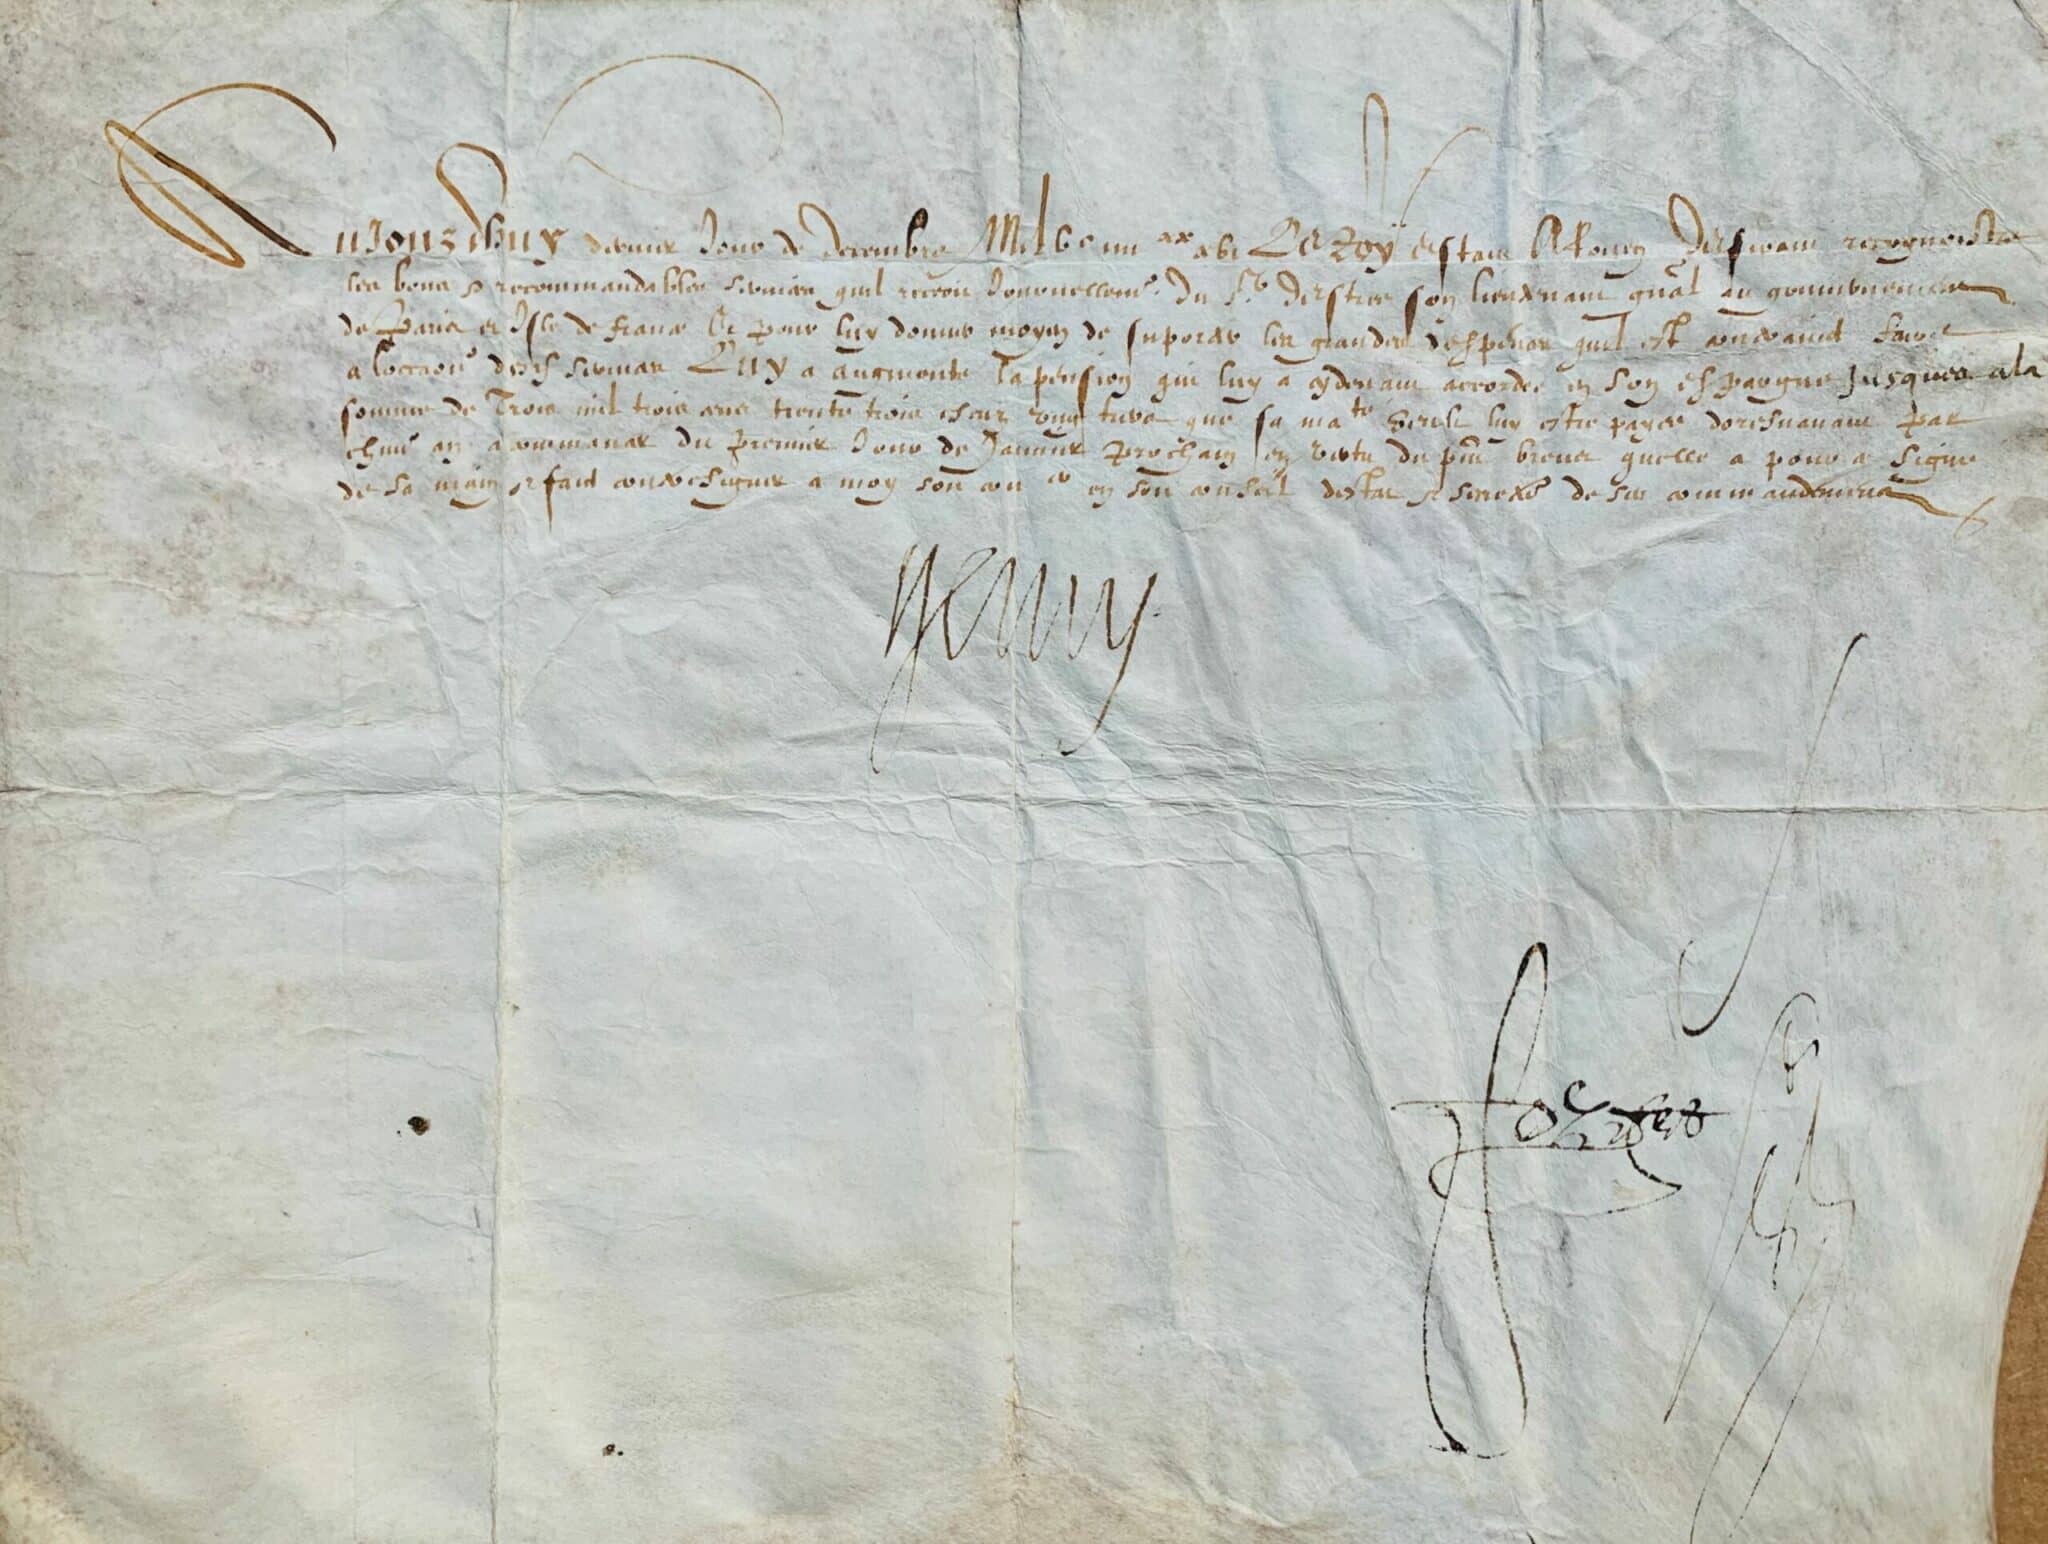 Aujourdhuy dernier Jour de Decembre Mil vc iiii xx xvi Le Roy estant A Rouen Desirant recongnoistre
les bons et recommandables services quil recoit Journellemt. du Sr. Destree son lieutenant gnal au gouvernement
de Paris et Isle de france Et pour luy donner moyen de suporter les grandes despenses quil est contrainct faire
a loccaon desds services Luy a augmente la pension qui luy a cydevant accordee en son espargne jusques a la
somme de Trois mil trois cens trente trois escuz vingt que sa mate veult luy estre payee doresnavant par
chun an a commancer du premier Jour de Janvier prochain en vertu du pnt brevet quelle a pour ce signe
de sa main et faict contresigner a moy son conr en son conseil destat et secrere de ses commandemens
Henry